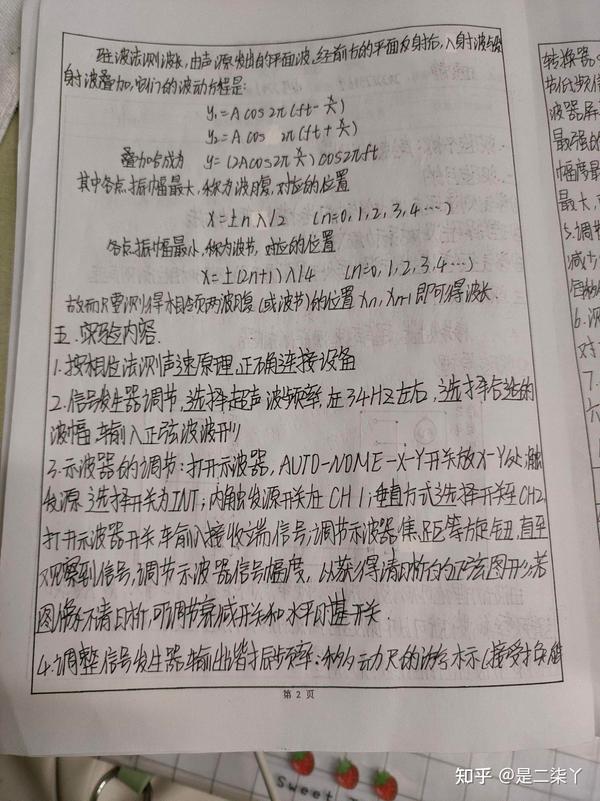 驻波法测波长,由声源发出的平面波经前方的平面反射后,入射波与反
射波叠加,它们的波动方程是:
y₁=Acos2π(ft-x/λ)
y₂=Acos 2π(ft+x/λ)
叠加后成为 y=(2Acos2πx/λ)cos2πft
其中各点振幅最大,称为波腹,对应的位置
X=±nλ/2 (n=0,1,2,3,4…)
各点振幅最小,称为波节,对应的位置
X=±(2n+1)λ/4 (n=0,1,2,3,4…)
故而只要测得相邻两波腹(或波节)的位置Xn,Xn+1即可得波长.
五.实验内容.
1.按相位法测声速原理,正确连接设备
2.信号发生器调节,选择超声波频率,在34HZ左右,选择合适的
波幅,输入正弦波波形
3.示波器的调节:打开示波器,AUTO-NOME-X-Y开关放X-Y处,触
发源选择开关为INT;内触发源开关在CH1;垂直方式选择开关至CH2
打开示波器开关,输入接收端信号;调节示波器焦距等旋钮,直至
观察到信号,调节示波器信号幅度,以获得清晰的正弦图形若
图像不清晰,可调节衰减开关和水平时基开关.
4.调整信号发生器输出谐振频率:移动动尺的游标(接受换能
第 2 页
转换器
节低频信
波器屏
最强的
幅度最
最大,
5.调节
减少
6.
对
7.
Sweet
知乎 @是二柒丫